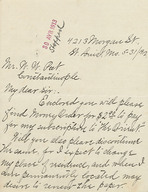 4213 Morgan St
St. Louis, Mo. 5-31/
Mr. W. W. Peet
Constantinople
My dear sir:
Enclosed you will please
find Money Order for $2.
for my subscription to The Orient
Will you also please discontinue
the same, for I expect to change
my place of residence, and when I
am permanently located may
desire to renew the paper.